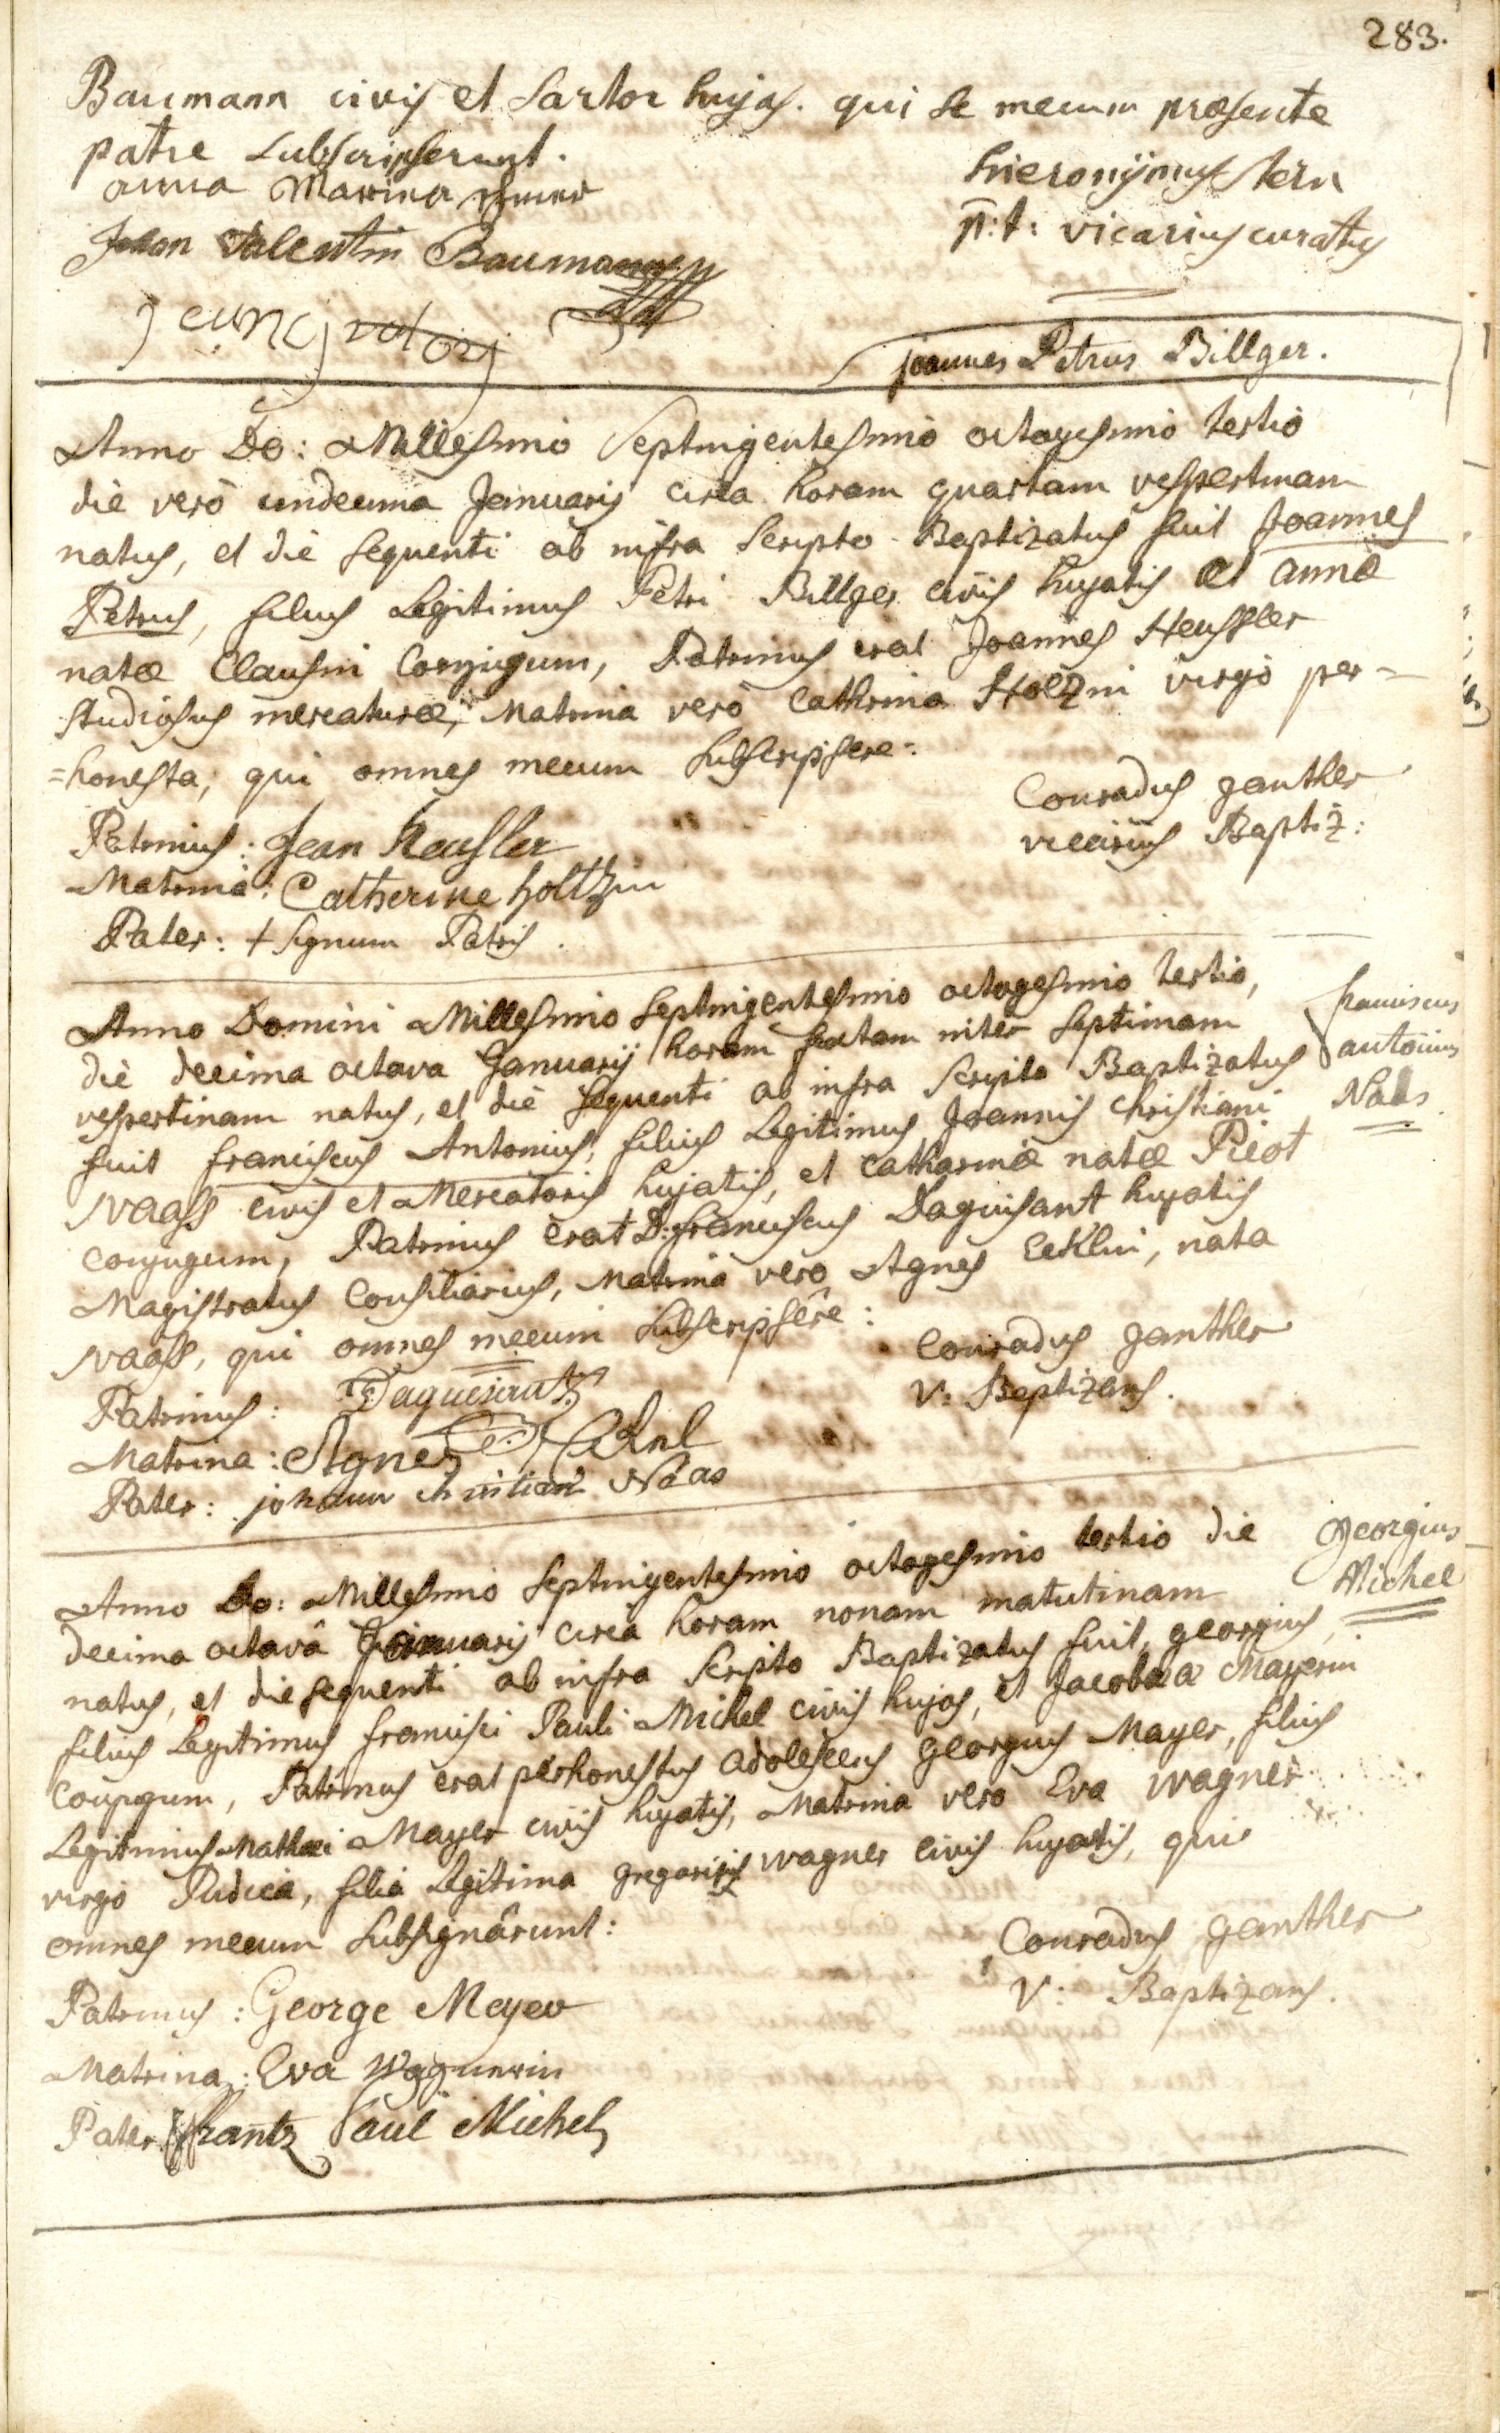 283.
Baumann civis et Sartor hujas. qui se mecum præsente
patre subscripserunt.
anna Maria
Hieronÿmus Stern
Johan Valentin Baumann
p: t: vicarius curatus
joannes Petrus Billger.
Anno Do: Millesimo Septingentesimo octogesimo tertio
die verò undecima Januarij circa horam quartam vespertinam
natus, et die sequenti ab infra scripto Baptizatus fuit Joannes
Petrus, filius Legitimus Petri Billger civis hujatis et annæ
natæ Clausin Conjugum, Patrinus erat Joannes Heussler
studiosus mercaturæ, Matrina verò Cathrina Holzin virgo per=
=honesta, qui omnes mecum subscripsere:
Conradus ganther
vicarius Baptiz:
Patrinus: Jean Heusler
Matrina: Catherine holtzin
Pater: + signum Patris.
Anno Domini Millesimo Septingentesimo octogesimo tertio,
franciscus
antonius
Naas
die decima octava Januarij horam sextam inter septimam
vespertinam natus, et die sequenti ab infra scripto Baptizatus
fuit franciscus Antonius, filius Legitimus Joannis christiani
Naass civis et Mercatoris hujatis, et catharinæ natæ Piot
conjugum, Patrinus erat D: franciscus Daguisant hujatis
Magistratus Consiliarius, Matrina vero Agnes Ecklin, nata
Naass, qui omnes mecum subscripsêre:
Conradus ganther
V: Baptizans.
Patrinus: Daguesant
Matrina: Agnes
Pater: johann christian Naas
Anno Do: Millesimo Septingentesimo octogesimo tertio die
georgius
Michel
decima octavâ Januarij circa horam nonam matutinam
natus, et die sequenti ab infra scripto Baptizatus fuit, georgius,
filius Legitimus francisci Pauli Michel civis hujas, et Jacobæa Mayerin
conjugum, Patrinus erat perhonestus adolescens georgius Mayer, filius
Legitimus Mathæi Mayer civis hujatis, Matrina vero Eva Wagner
virgo Pudica, filia Legitima gregorii Wagner civis hujatis, qui
omnes mecum subsignârunt:
Conradus ganther
V: Baptizans.
Patrinus: George Meyer
Matrina: Eva Wagnerin
Pater frantz Paul Michel